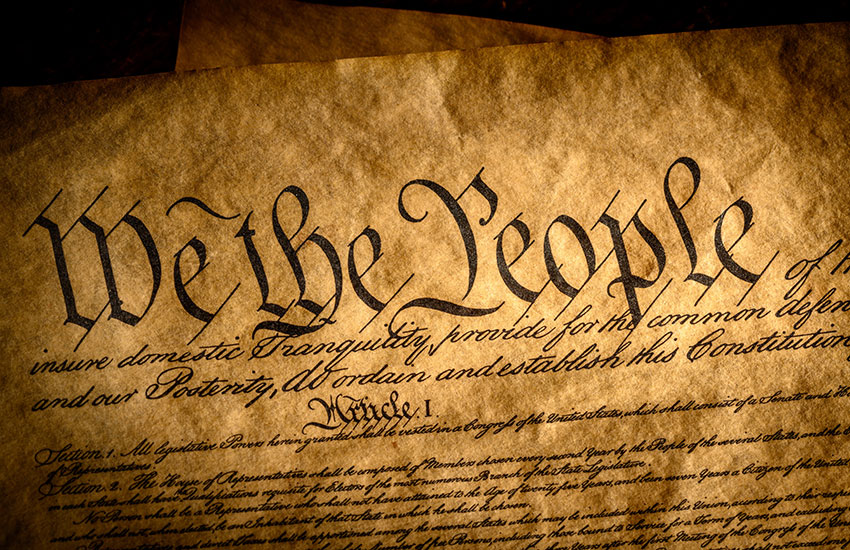 We the People of th
insure domestic Tranquility, provide for the common defen
and our Posterity, do ordain and establish this Constitution
Article. I.
Section. 1. All legislative Powers herein granted shall be vested in a Congress of the United States, which shall consist of a Senate and Ho
of Representatives.
Section. 2. The House of Representatives shall be composed of Members chosen every second Year by the People of the several States, and the
in each State shall have Qualifications requisite for Electors of the most numerous Branch of the State Legislature.
No Person shall be a Representative who shall not have attained to the Age of twenty five Years, and been seven Years a Citizen of the United
and who shall not, when elected, be an Inhabitant of that State in which he shall be chosen.
Representatives and direct Taxes shall be apportioned among the several States which may be included within this Union, according to their respe
Number of free Persons, including those bound to Service for a Term of Years, and excluding
Years after the first Meeting of the Congress of the Un